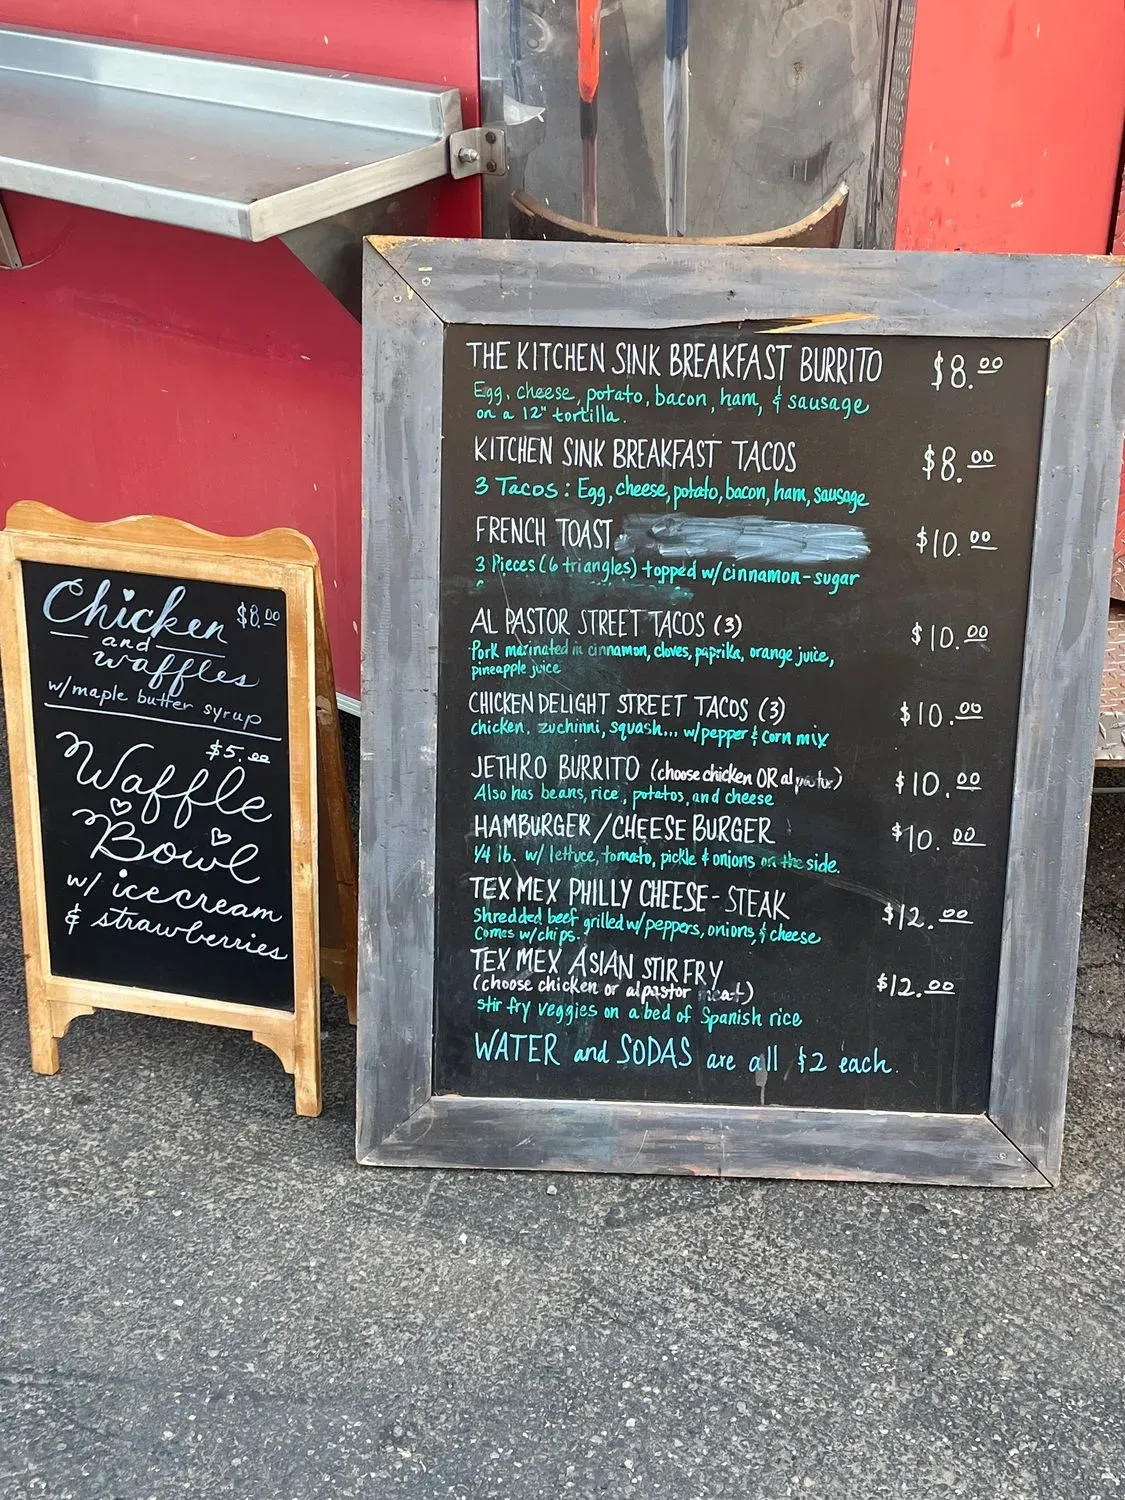 Chicken $8.00
and
waffles
w/maple butter syrup
$5.00
Waffle
Bowl
w/ icecream
& strawberries
THE KITCHEN SINK BREAKFAST BURRITO $8.00
Egg, cheese, potato, bacon, ham, & sausage
on a 12" tortilla.
KITCHEN SINK BREAKFAST TACOS $8.00
3 Tacos: Egg, cheese, potato, bacon, ham, sausage
FRENCH TOAST $10.00
3 Pieces (6 triangles) topped w/cinnamon-sugar
AL PASTOR STREET TACOS (3) $10.00
Pork marinated in cinnamon, cloves, paprika, orange juice,
pineapple juice
CHICKEN DELIGHT STREET TACOS (3) $10.00
chicken, zuchinni, squash... w/pepper & corn mix
JETHRO BURRITO (choose chicken OR al pastor) $10.00
Also has beans, rice, potatoes, and cheese
HAMBURGER/CHEESEBURGER $10.00
1/4 lb. w/ lettuce, tomato, pickle & onions on the side.
TEX MEX PHILLY CHEESE-STEAK $12.00
Shredded beef grilled w/peppers, onions, & cheese
Comes w/chips.
TEX MEX ASIAN STIR FRY $12.00
(choose chicken or al pastor meat)
stir fry veggies on a bed of Spanish rice
WATER and SODAS are all $2 each.